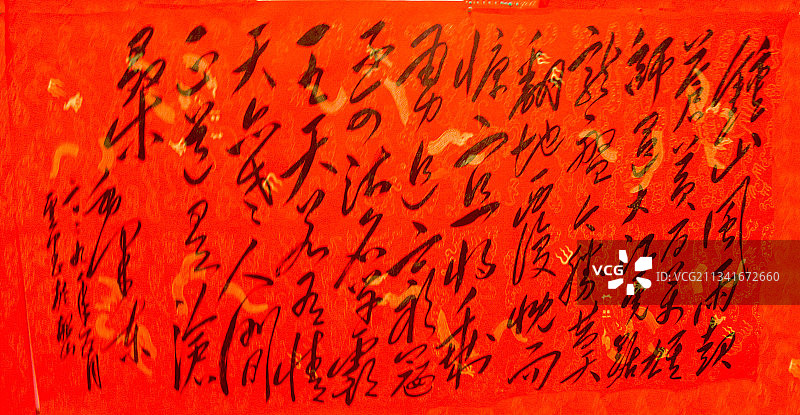 鐘山風雨起
蒼黃百萬雄
師過大江虎踞
龍盤今勝昔天
翻地覆慨而
慷宜將剩
勇追窮寇
不可沽名學霸
王天若有情
天亦老人間
正道是滄
桑
毛澤東
年六月
VCG
VCG211341672660